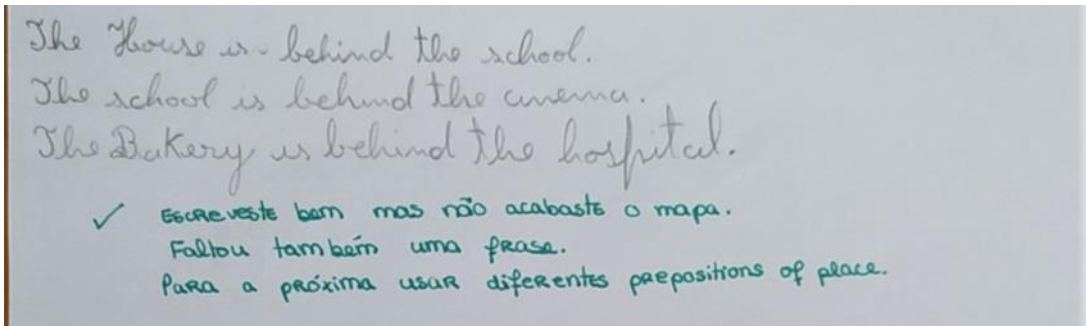 The House is behind the school.
The school is behind the cinema.
The Bakery is behind the hospital.
✓ Escreveste bem mas não acabaste o mapa.
Faltou também uma frase.
Para a próxima usar diferentes prepositions of place.